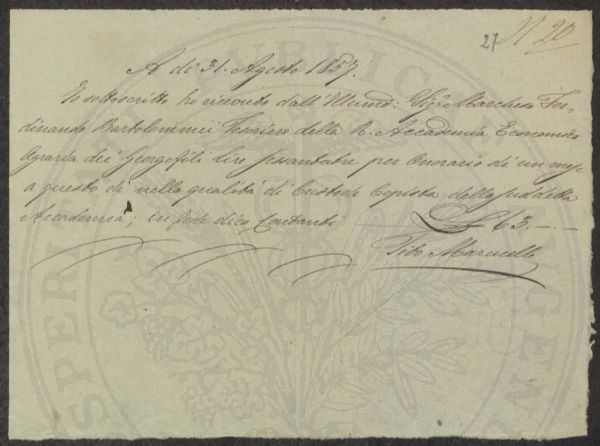 27 N 20
A dì 31. Agosto 1857.
Io sottoscritto ho ricevuto dall'Illmo: Sig.r Marchese Fer-
dinando Bartolommei Tesoriere della R. Accademia Economico
Agraria dei Georgofili lire sessantatre per Onorario di un mese
a questo dì nella qualità di Custode Copista della suddetta
Accademia; in fede dico Contanti £ 63.–.–
Tito Marucelli
PUBLICAE
PROSPERITATI
AUGENDAE